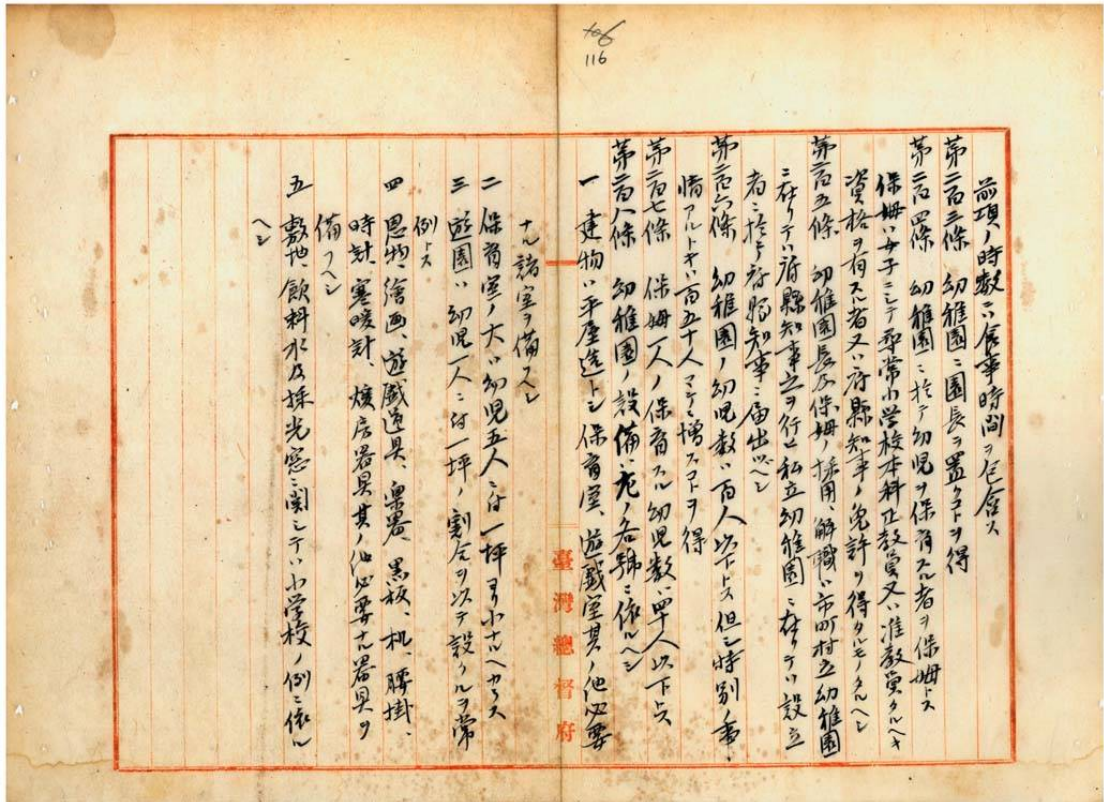 116
前項ノ時数ニハ食事時間ヲ包含ス
第二百三條 幼稚園ニ園長ヲ置クコトヲ得
第二百四條 幼稚園ニ於テ幼児ヲ保育スル者ヲ保姆トス
保姆ハ女子ニシテ尋常小学校本科正教員又ハ准教員タルヘキ
資格ヲ有スル者又ハ府縣知事ノ免許ヲ得タルモノタルヘシ
第二百五條 幼稚園長及保姆ノ採用、解職ハ市町村立幼稚園
ニ在リテハ府縣知事之ヲ行ヒ私立幼稚園ニ在リテハ設立
者ニ於テ府縣知事ニ届出ツヘシ
第二百六條 幼稚園ノ幼児数ハ百人以下トス但シ特別ノ事
情アルトキハ百五十人マテ増スコトヲ得
第二百七條 保姆一人ノ保育スル幼児数ハ四十人以下トス
第二百八條 幼稚園ノ設備ハ左ノ各號ニ依ルヘシ
一 建物ハ平屋造トシ保育室、遊戯室其ノ他必要
臺灣總督府
ナル諸室ヲ備フヘシ
二 保育室ノ大ハ幼児五人ニ付一坪ヨリ小ナルヘカラス
三 遊園ハ幼児一人ニ付一坪ノ割合ヲ以テ設クルヲ常
例トス
四 恩物、繪画、遊戯道具、楽器、黒板、机、腰掛、
時計、寒暖計、煖房器具其ノ他必要ナル器具ヲ
備フヘシ
五 敷地、飲料水及採光窓ニ関シテハ小学校ノ例ニ依ル
ヘシ